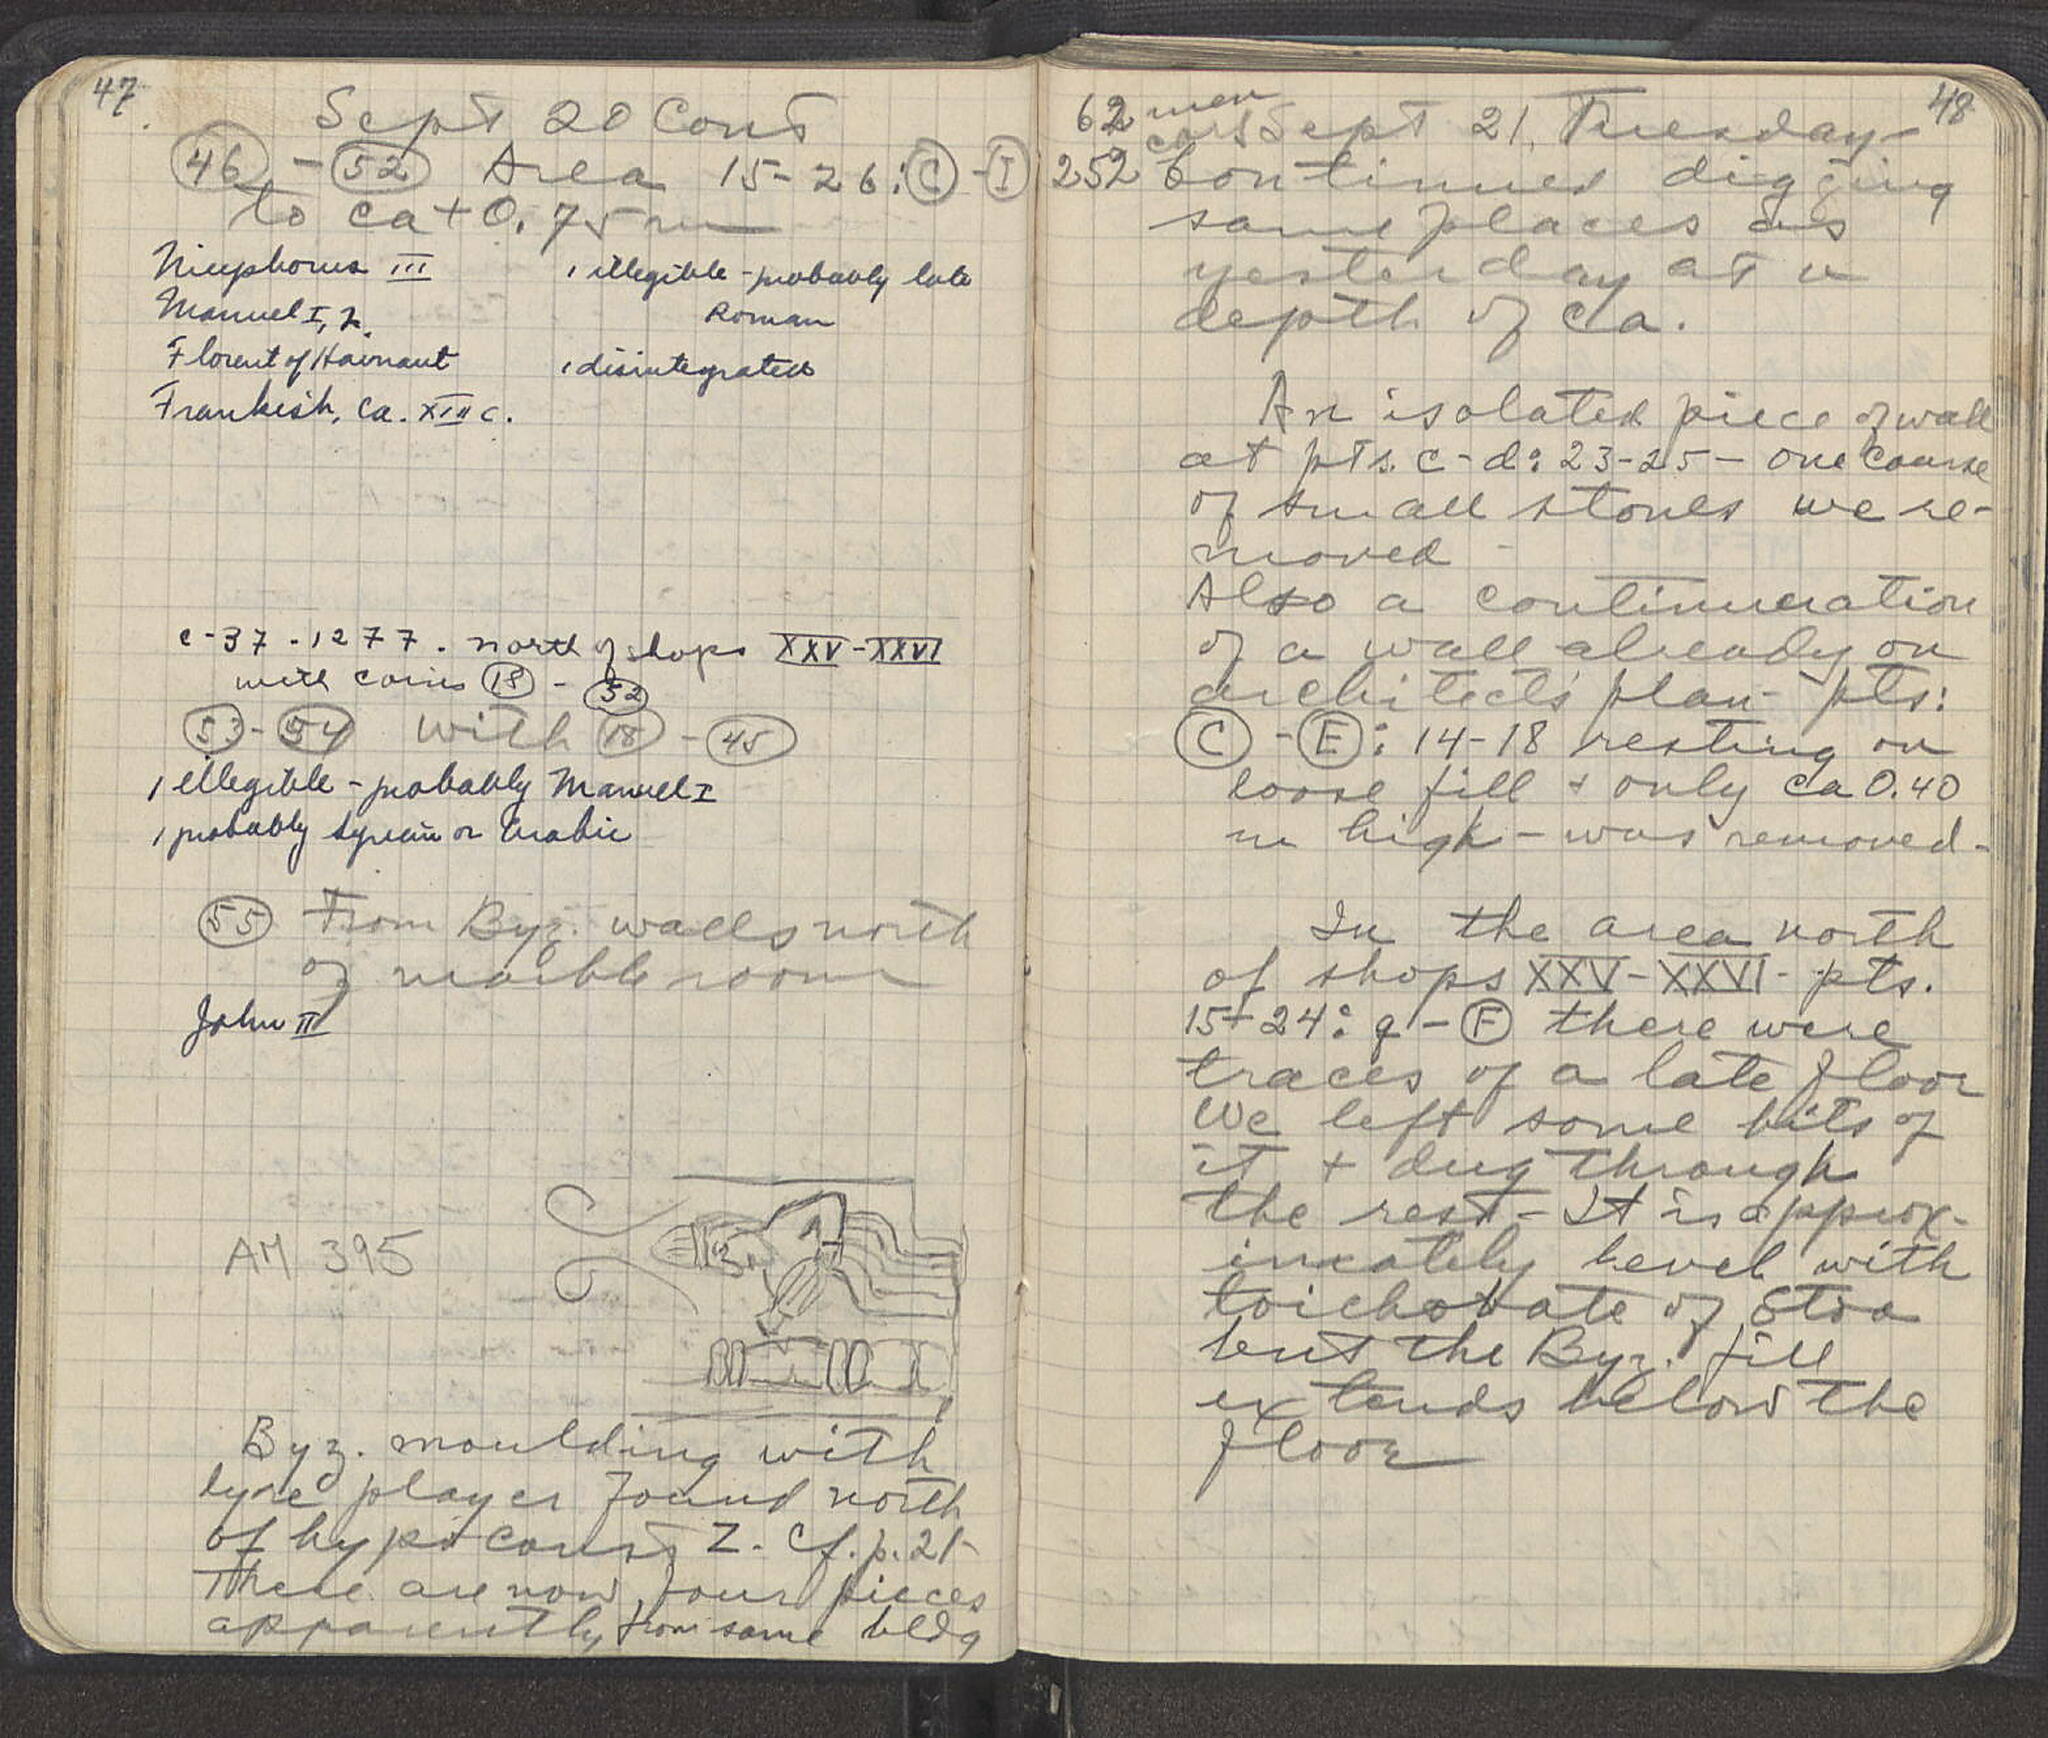 47
Sept 20 Cont
46 - 52 Area 15-26: C - I
to ca + 0.75 m
Nicephorus III
Manuel I, 2.
Florent of Hainaut
Frankish, ca. XIII c.
1 illegible - probably late
Roman
1 disintegrated
c-37-1277. north of shops XXV-XXVI
with coins 18 - 52
53 - 54 with 18 - 45
1 illegible - probably Manuel I
1 probably Syrian or Arabic
55 From Byz. walls north
of marble room
John II
AM 395
Byz. moulding with
lyre player found north
of hypocaust Z. Cf. p. 21-
There are now four pieces
apparently from same bldg
48
62 men
252 carts
Sept 21, Tuesday-
Continued digging
same places as
yesterday at a
depth of ca.
An isolated piece of wall
at pts. c-d: 23-25 - one course
of small stones we re-
moved -
Also a continuation
of a wall already on
architects' plan - pts:
C - E: 14-18 resting on
loose fill + only ca 0.40
m high - was removed -
In the area north
of shops XXV-XXVI - pts.
15-24: g - F there were
traces of a late floor
We left some bits of
it + dug through
the rest - It is approx-
imately level with
toichobate of Stoa
but the Byz. fill
extends below the
floor